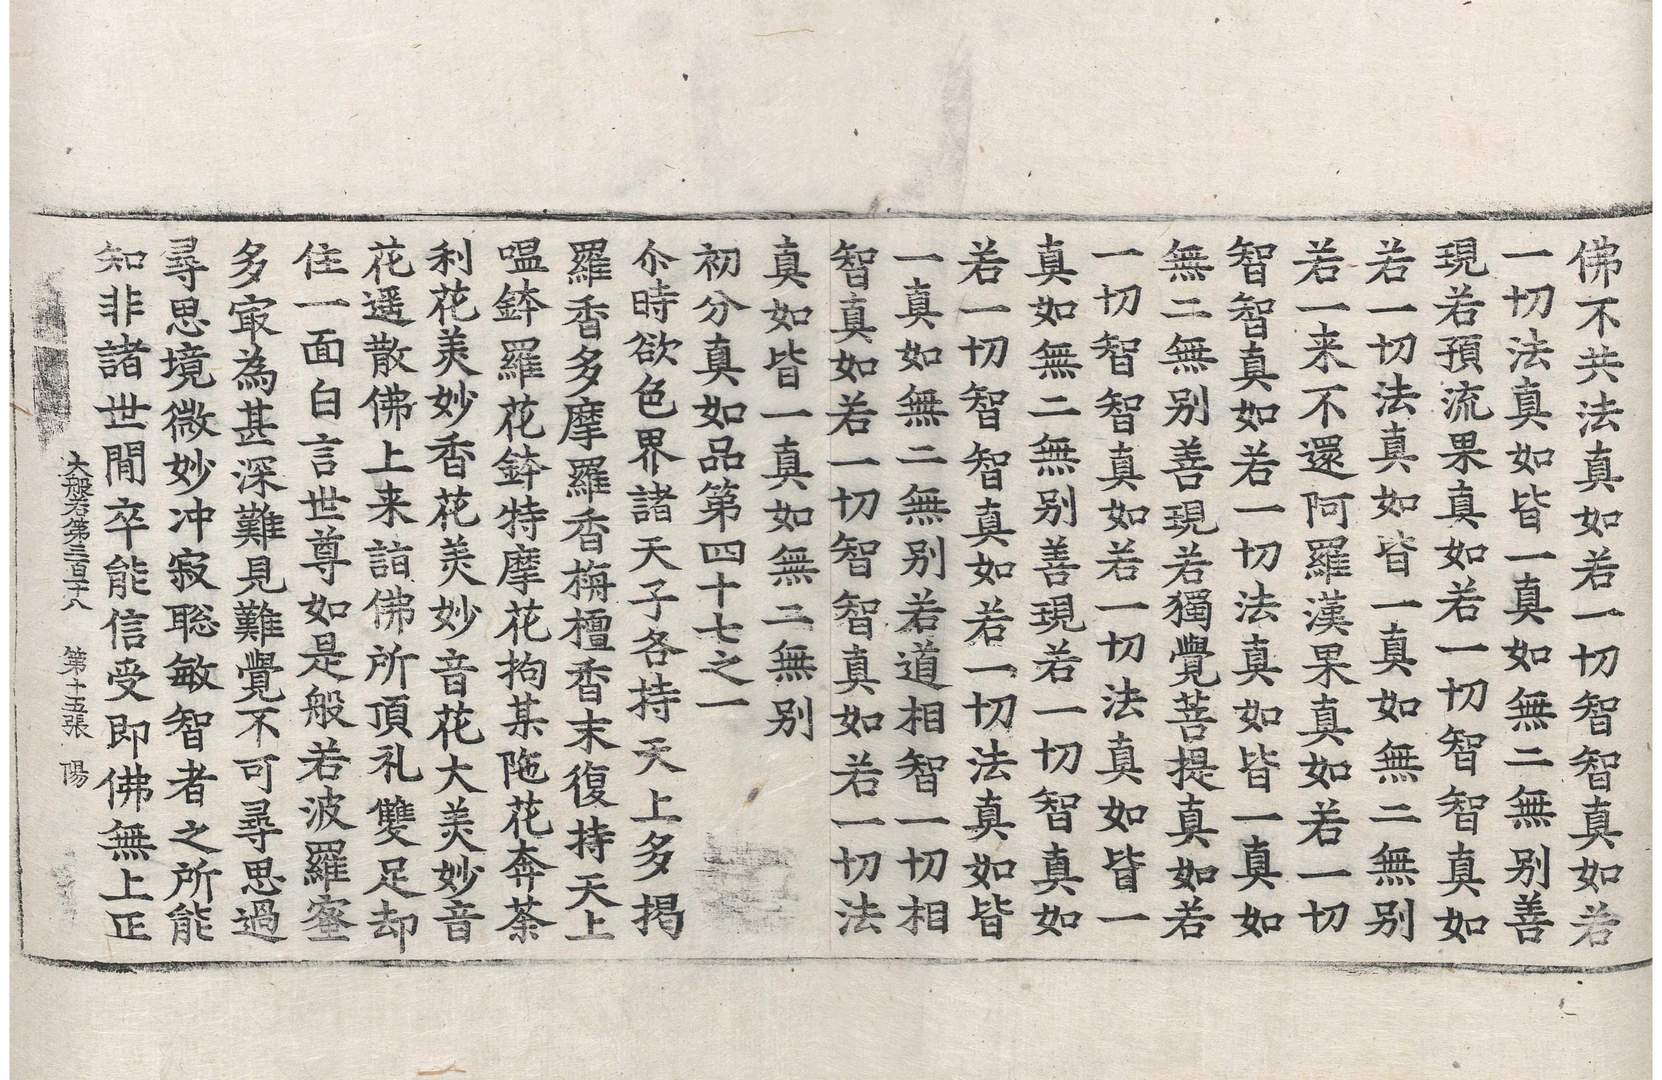 佛不共法真如若一切智智真如若
一切法真如皆一真如無二無别善
現若預流果真如若一切智智真如
若一切法真如皆一真如無二無别
若一来不還阿羅漢果真如若一切
智智真如若一切法真如皆一真如
無二無别善現若獨覺菩提真如若
一切智智真如若一切法真如皆一
真如無二無别善現若一切智真如
若一切智智真如若一切法真如皆
一真如無二無别若道相智一切相
智真如若一切智智真如若一切法
真如皆一真如無二無别
初分真如品第四十七之一
尒時欲色界諸天子各持天上多揭
羅香多摩羅香栴檀香末復持天上
嗢鉢羅花鉢特摩花拘某陁花奔荼
利花美妙香花美妙音花大美妙音
花遥散佛上来詣佛所頂礼雙足却
住一面白言世尊如是般若波羅蜜
多㝡為甚深難見難覺不可尋思過
尋思境微妙冲寂聡敏智者之所能
知非諸世間卒能信受即佛無上正
大般若第三百十八 第十五張 陽